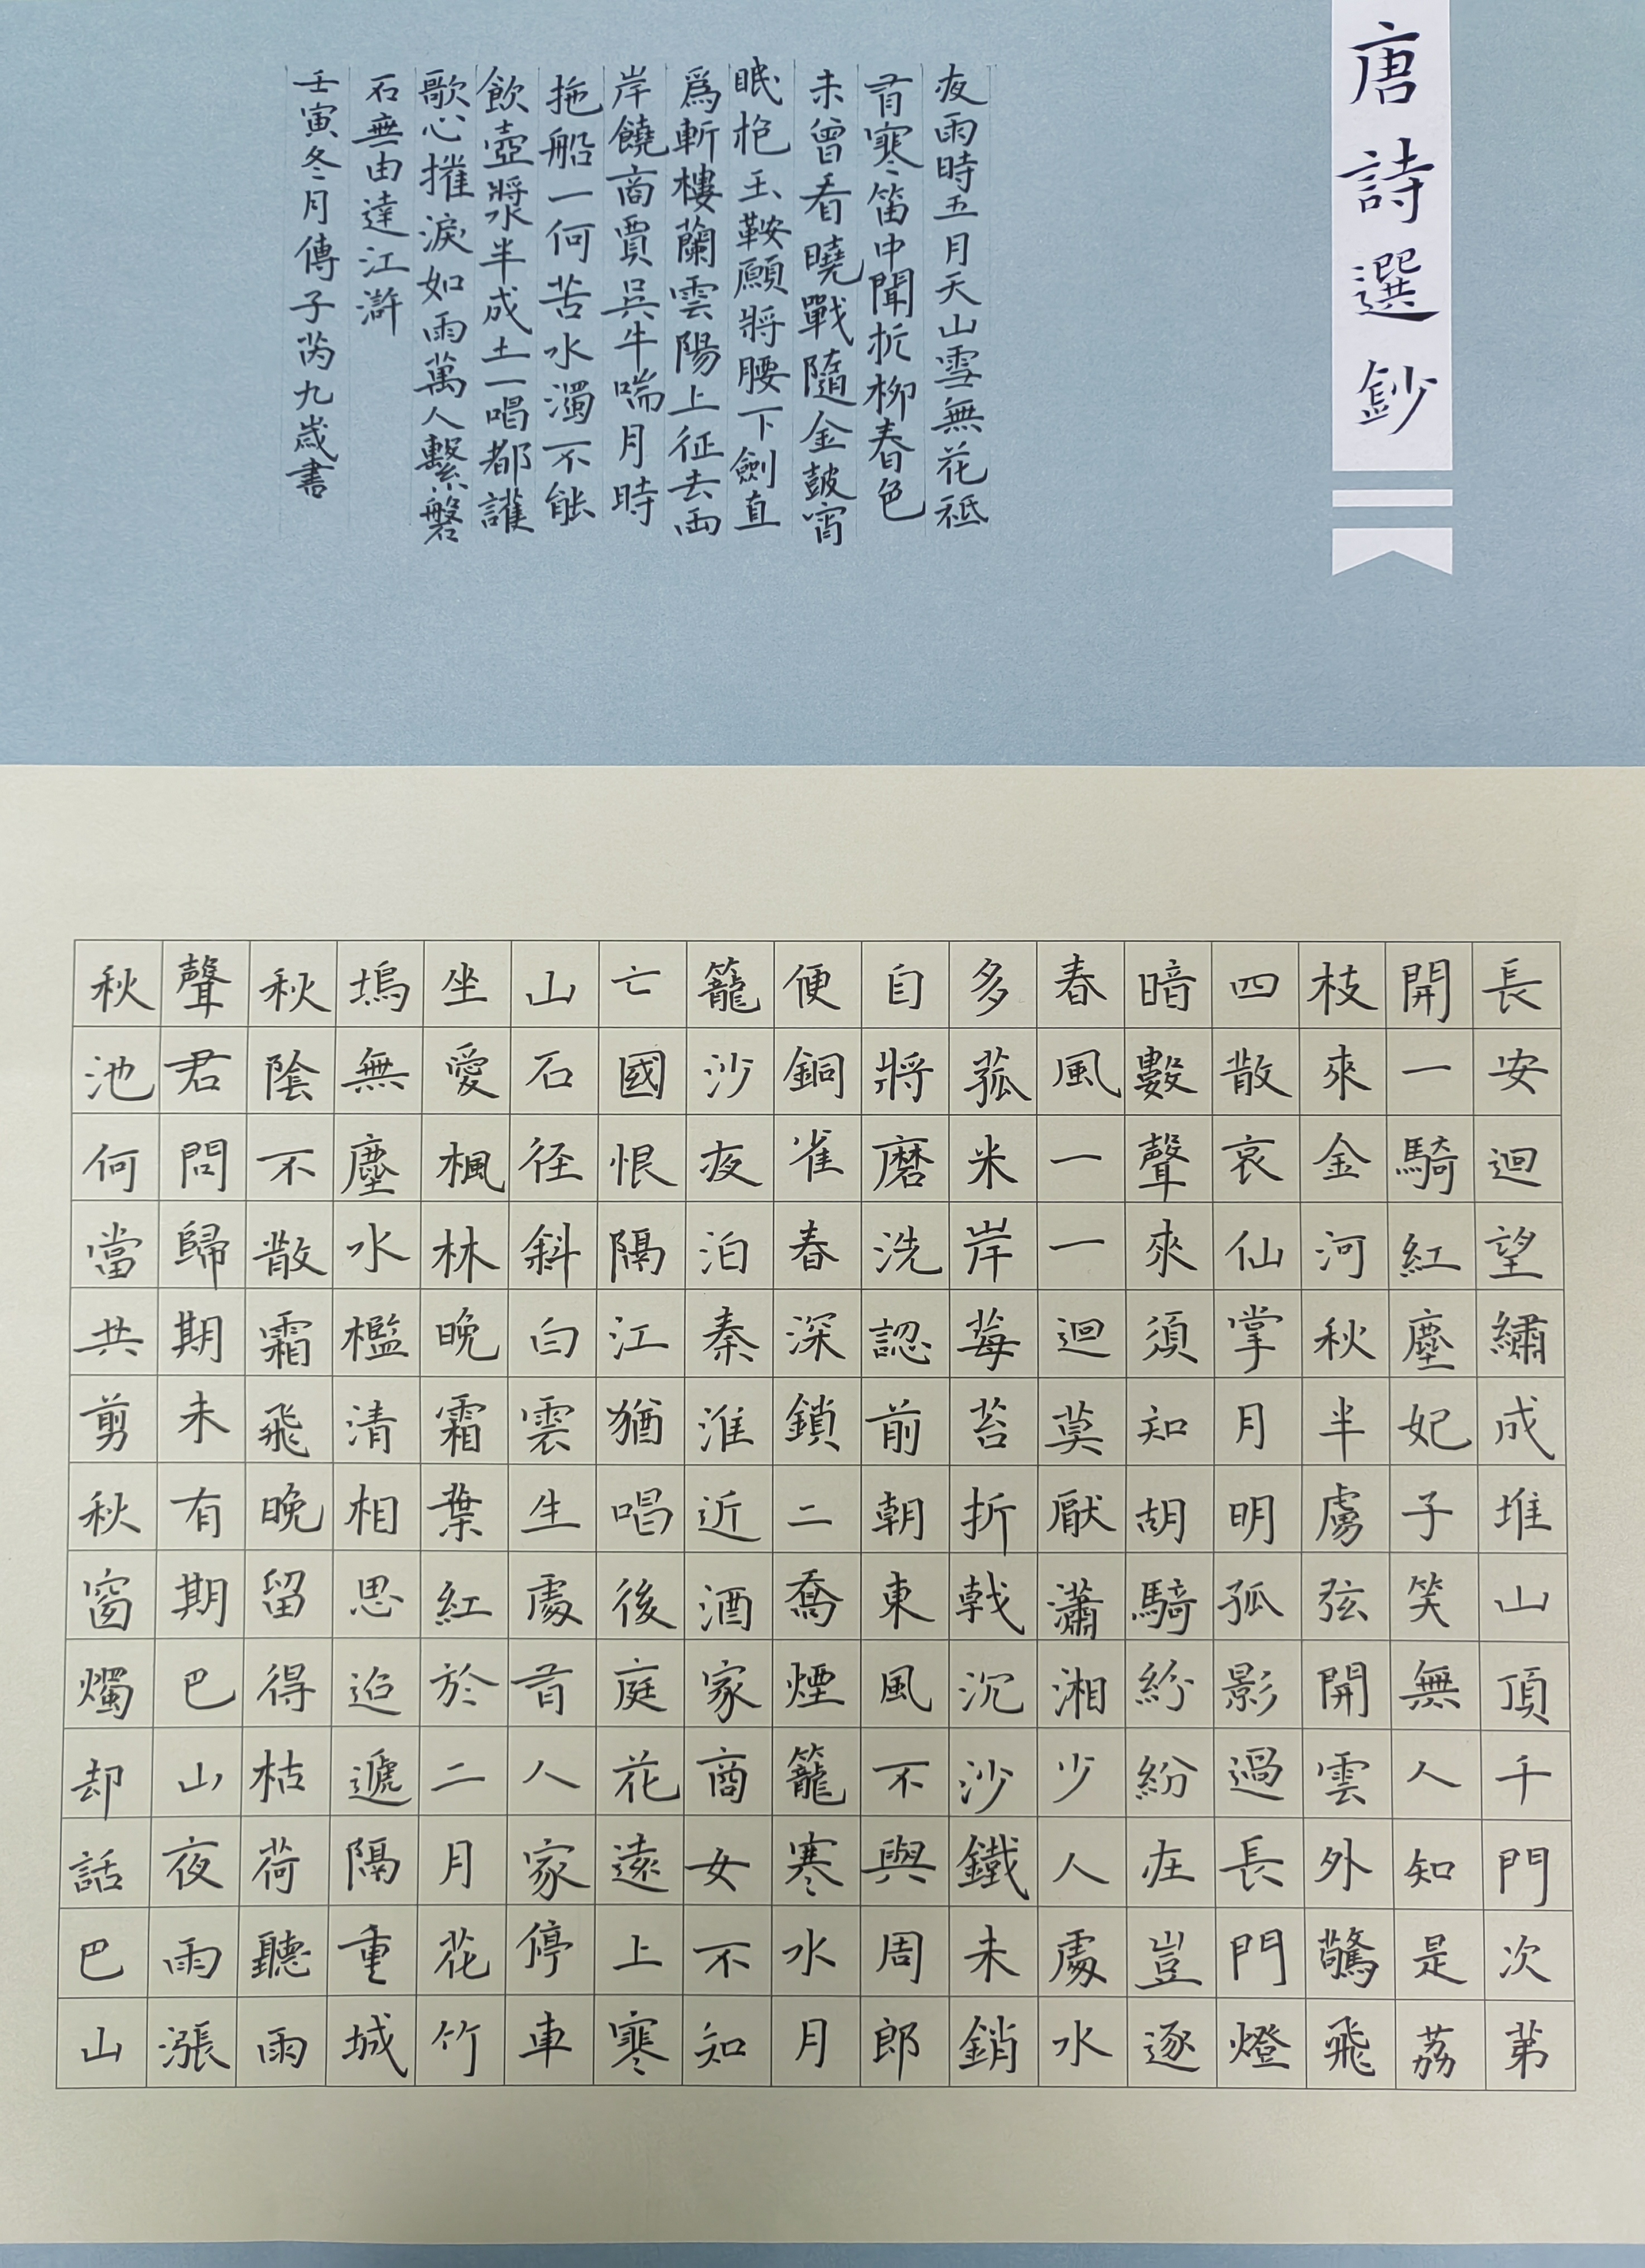 唐詩選鈔
夜雨時五月天山雪無花祗
有寒笛中聞折柳春色
未曾看曉戰隨金鼓宵
眠抱玉鞍願將腰下劍直
爲斬樓蘭雲陽上征去兩
岸饒商賈吳牛喘月時
拖船一何苦水濁不能
飲壺漿半成土一唱都護
歌心摧淚如雨萬人繫磐
石無由達江滸
壬寅冬月傅子芮九歲書
長安迴望繡成堆山頂千門次第
開一騎紅塵妃子笑無人知是荔
枝來金河秋半虜弦開雲外驚飛
四散哀仙掌月明孤影過長門燈
暗數聲來須知胡騎紛紛在豈逐
春風一一迴莫厭瀟湘少人處水
多菰米岸莓苔折戟沉沙鐵未銷
自將磨洗認前朝東風不與周郎
便銅雀春深鎖二喬煙籠寒水月
籠沙夜泊秦淮近酒家商女不知
亡國恨隔江猶唱後庭花遠上寒
山石径斜白雲生處有人家停車
坐愛楓林晚霜葉紅於二月花竹
塢無塵水檻清相思迢遞隔重城
秋陰不散霜飛晚留得枯荷聽雨
聲君問歸期未有期巴山夜雨漲
秋池何當共剪秋窗燭却話巴山